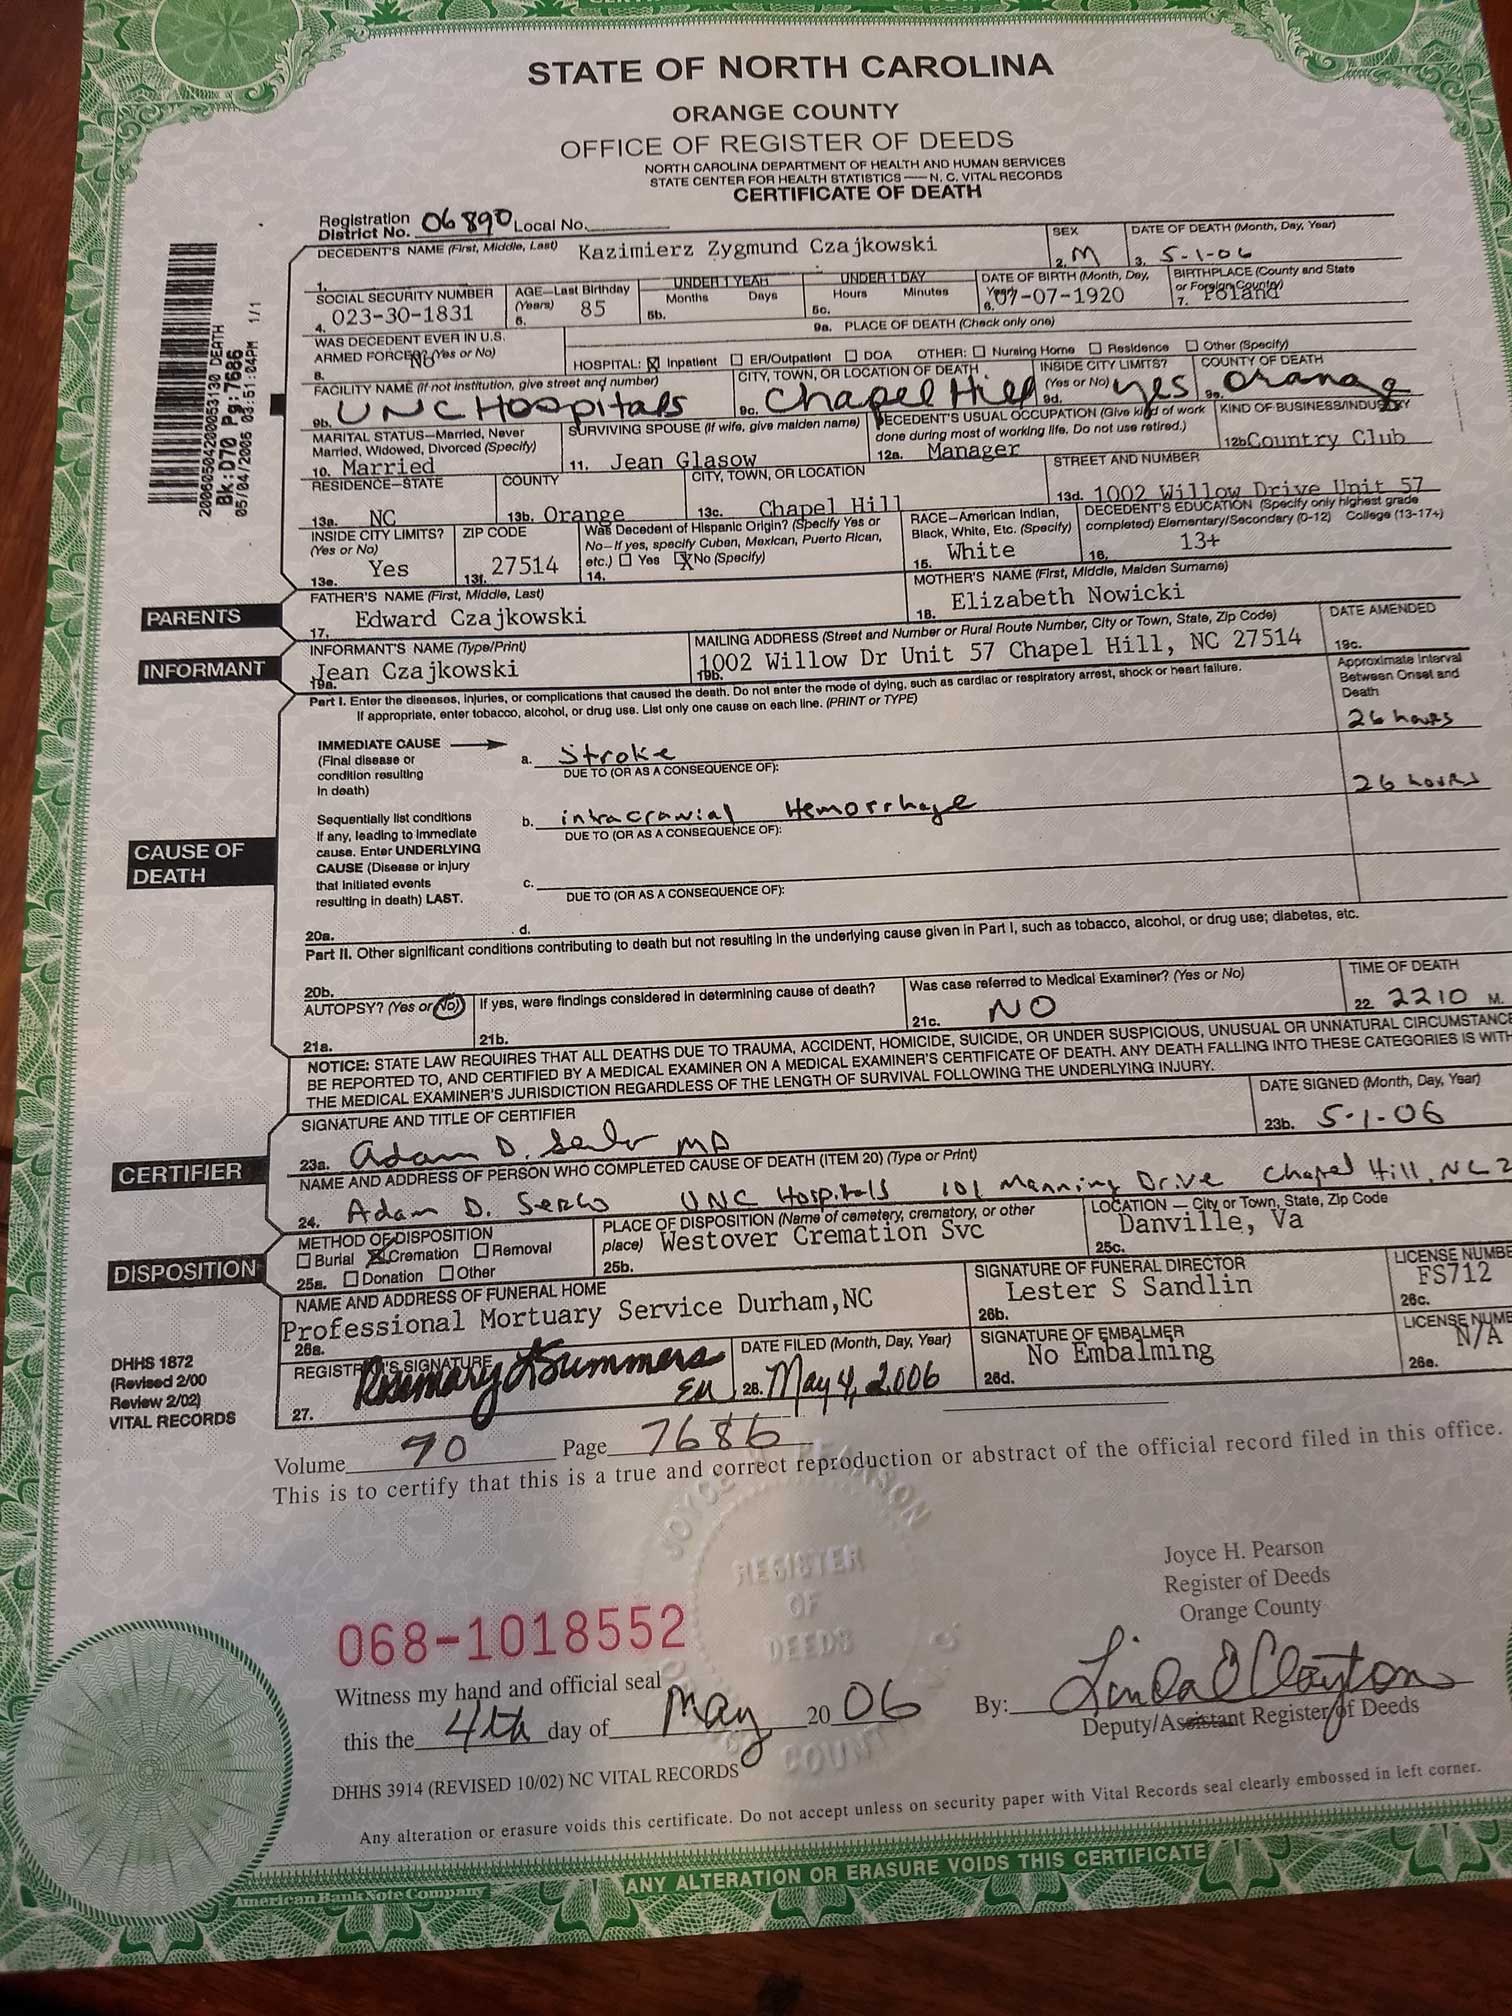 STATE OF NORTH CAROLINA
ORANGE COUNTY
OFFICE OF REGISTER OF DEEDS
NORTH CAROLINA DEPARTMENT OF HEALTH AND HUMAN SERVICES
STATE CENTER FOR HEALTH STATISTICS — N. C. VITAL RECORDS
CERTIFICATE OF DEATH
20060504200053130 DEATH
Bk:D70 Pg:7686
05/04/2006 03:51:04PM 1/1
Registration District No. 06890 Local No.
DECEDENT'S NAME (First, Middle, Last) 1. Kazimierz Zygmund Czajkowski
SEX 2. M
DATE OF DEATH (Month, Day, Year) 3. 5-1-06
SOCIAL SECURITY NUMBER 4. 023-30-1831
AGE—Last Birthday (Years) 5. 85
UNDER 1 YEAR Months Days 5b.
UNDER 1 DAY Hours Minutes 5c.
DATE OF BIRTH (Month, Day, Year) 6. 07-07-1920
BIRTHPLACE (County and State or Foreign Country) 7. Poland
WAS DECEDENT EVER IN U.S. ARMED FORCES? (Yes or No) 8. No
9a. PLACE OF DEATH (Check only one)
HOSPITAL: ☒ Inpatient ☐ ER/Outpatient ☐ DOA OTHER: ☐ Nursing Home ☐ Residence ☐ Other (Specify)
FACILITY NAME (If not institution, give street and number) 9b. UNC Hospitals
CITY, TOWN, OR LOCATION OF DEATH 9c. Chapel Hill
INSIDE CITY LIMITS? (Yes or No) 9d. yes
COUNTY OF DEATH 9e. Orange
MARITAL STATUS—Married, Never Married, Widowed, Divorced (Specify) 10. Married
SURVIVING SPOUSE (If wife, give maiden name) 11. Jean Glasow
DECEDENT'S USUAL OCCUPATION (Give kind of work done during most of working life. Do not use retired.) 12a. Manager
KIND OF BUSINESS/INDUSTRY 12b Country Club
RESIDENCE—STATE 13a. NC
COUNTY 13b. Orange
CITY, TOWN, OR LOCATION 13c. Chapel Hill
STREET AND NUMBER 13d. 1002 Willow Drive Unit 57
INSIDE CITY LIMITS? (Yes or No) 13e. Yes
ZIP CODE 13f. 27514
Was Decedent of Hispanic Origin? (Specify Yes or No—If yes, specify Cuban, Mexican, Puerto Rican, etc.) ☐ Yes ☒ No (Specify) 14.
RACE—American Indian, Black, White, Etc. (Specify) 15. White
DECEDENT'S EDUCATION (Specify only highest grade completed) Elementary/Secondary (0-12) College (13-17+) 16. 13+
PARENTS
FATHER'S NAME (First, Middle, Last) 17. Edward Czajkowski
MOTHER'S NAME (First, Middle, Maiden Surname) 18. Elizabeth Nowicki
INFORMANT
INFORMANT'S NAME (Type/Print) 19a. Jean Czajkowski
MAILING ADDRESS (Street and Number or Rural Route Number, City or Town, State, Zip Code) 19b. 1002 Willow Dr Unit 57 Chapel Hill, NC 27514
DATE AMENDED 19c.
Part I. Enter the diseases, injuries, or complications that caused the death. Do not enter the mode of dying, such as cardiac or respiratory arrest, shock or heart failure.
If appropriate, enter tobacco, alcohol, or drug use. List only one cause on each line. (PRINT or TYPE)
Approximate Interval Between Onset and Death
CAUSE OF DEATH
IMMEDIATE CAUSE (Final disease or condition resulting in death)
a. Stroke 26 hours
DUE TO (OR AS A CONSEQUENCE OF):
Sequentially list conditions if any, leading to immediate cause. Enter UNDERLYING CAUSE (Disease or injury that initiated events resulting in death) LAST.
b. intracranial Hemorrhage 26 hours
DUE TO (OR AS A CONSEQUENCE OF):
c.
DUE TO (OR AS A CONSEQUENCE OF):
20a. d.
Part II. Other significant conditions contributing to death but not resulting in the underlying cause given in Part I, such as tobacco, alcohol, or drug use; diabetes, etc.
20b.
AUTOPSY? (Yes or No) 21a.
If yes, were findings considered in determining cause of death? 21b.
Was case referred to Medical Examiner? (Yes or No) 21c. NO
TIME OF DEATH 22. 2210 M.
NOTICE: STATE LAW REQUIRES THAT ALL DEATHS DUE TO TRAUMA, ACCIDENT, HOMICIDE, SUICIDE, OR UNDER SUSPICIOUS, UNUSUAL OR UNNATURAL CIRCUMSTANCE
BE REPORTED TO, AND CERTIFIED BY A MEDICAL EXAMINER ON A MEDICAL EXAMINER'S CERTIFICATE OF DEATH. ANY DEATH FALLING INTO THESE CATEGORIES IS WITH
THE MEDICAL EXAMINER'S JURISDICTION REGARDLESS OF THE LENGTH OF SURVIVAL FOLLOWING THE UNDERLYING INJURY.
CERTIFIER
SIGNATURE AND TITLE OF CERTIFIER 23a. Adam D. MD
DATE SIGNED (Month, Day, Year) 23b. 5-1-06
NAME AND ADDRESS OF PERSON WHO COMPLETED CAUSE OF DEATH (ITEM 20) (Type or Print)
24. Adam D. UNC Hospitals 101 Manning Drive Chapel Hill, NC 2
DISPOSITION
METHOD OF DISPOSITION ☐ Burial ☒ Cremation ☐ Removal 25a. ☐ Donation ☐ Other
PLACE OF DISPOSITION (Name of cemetery, crematory, or other place) 25b. Westover Cremation Svc
LOCATION — City or Town, State, Zip Code 25c. Danville, Va
NAME AND ADDRESS OF FUNERAL HOME 26a. Professional Mortuary Service Durham,NC
SIGNATURE OF FUNERAL DIRECTOR 26b. Lester S Sandlin
LICENSE NUMBE 26c. FS712
REGISTRAR'S SIGNATURE 27. Rosemary L Summers
DATE FILED (Month, Day, Year) 28. May 4, 2006
SIGNATURE OF EMBALMER 26d. No Embalming
LICENSE NUME 26e. N/A
DHHS 1872
(Revised 2/00
Review 2/02)
VITAL RECORDS
Volume 70 Page 7686
This is to certify that this is a true and correct reproduction or abstract of the official record filed in this office.
JOYCE H. PEARSON
REGISTER OF DEEDS
Joyce H. Pearson
Register of Deeds
Orange County
068-1018552
Witness my hand and official seal
this the 4th day of May 2006
By: Linda O Clayton
Deputy/Assistant Register of Deeds
DHHS 3914 (REVISED 10/02) NC VITAL RECORDS
Any alteration or erasure voids this certificate. Do not accept unless on security paper with Vital Records seal clearly embossed in left corner.
American Bank Note Company
ANY ALTERATION OR ERASURE VOIDS THIS CERTIFICATE